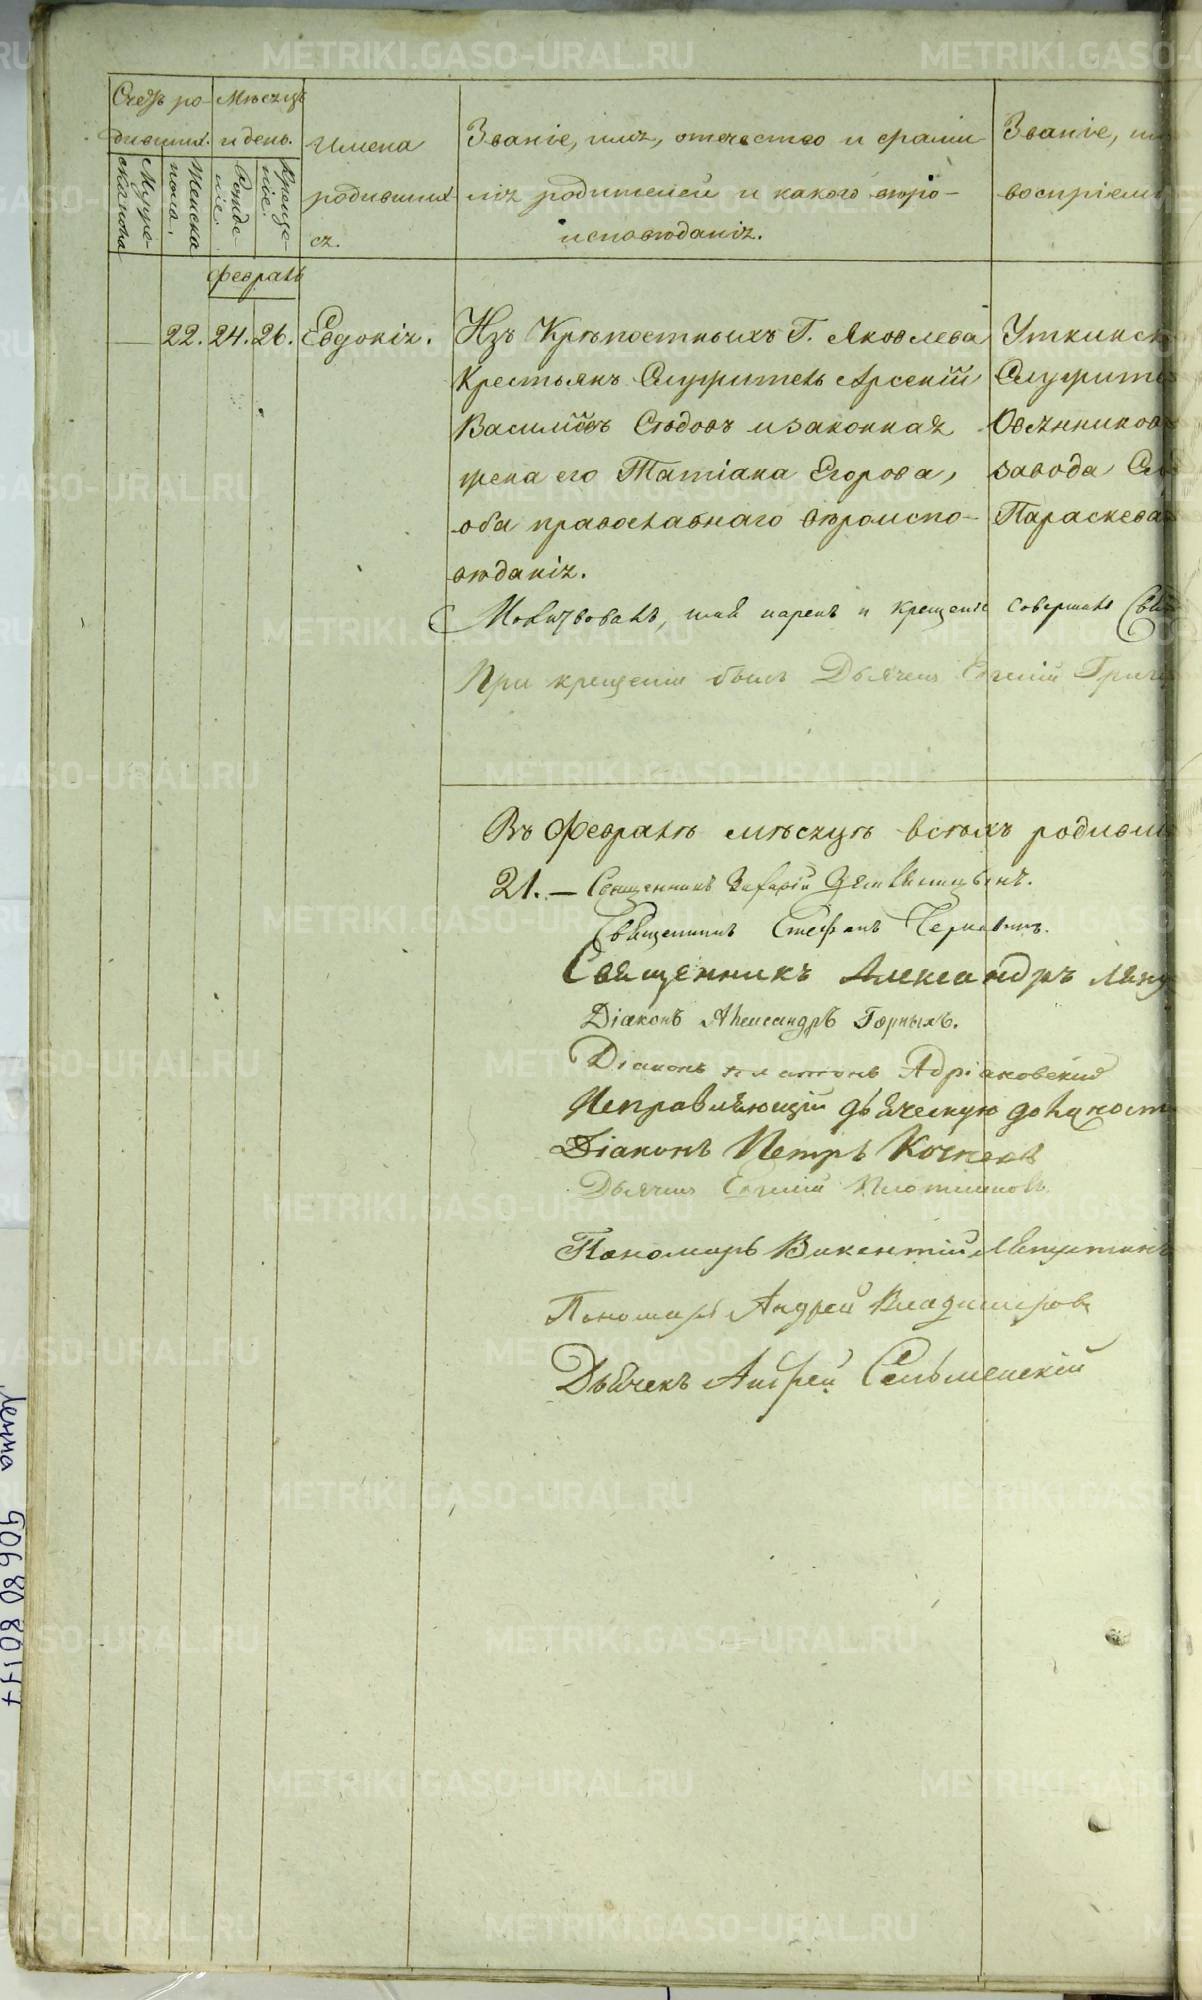 Счетъ ро-
дившихъ.
Мѣсяцъ
и день.
Имена
родивших
ся.
Званіе, имя, отечество и фами
лія родителей и какого вѣро-
исповѣданія.
Званіе, им
воспріем
Муже-
ска пола
Женска
пола.
Рожде-
ніе.
Креще-
ніе.
Февраль
22. 24. 26. Евдокія.
Изъ Крѣпостныхъ Г. Яковлева
Крестьянъ Служитель Арсеній
Васильевъ Сѣдовъ и законная
жена его Татіана Егорова,
оба православнаго вѣроиспо-
вѣданія.
Уткинск
Служите
Овчинников
завода Сл
Параскева
Молитвовалъ, имя нарекъ и крещеніе совершалъ Свящ
При крещеніи былъ Дьячекъ Евгеній Григ
Въ Февралѣ мѣсяцѣ всѣхъ родивши
21. — Священникъ Захарій
Священникъ Стефанъ
Священникъ Александръ
Діаконъ Александръ Горныхъ.
Діаконъ Платонъ Адріановскій
Исправляющій дьяческую должност
Діаконъ Петръ
Дьячекъ Евгеній Плотниковъ
Пономарь Викентій
Пономарь Андрей Владиміровъ
Дьячекъ Андрей Сельменскій
Ленма 90680 80177
METRIKI.GASO-URAL.RU